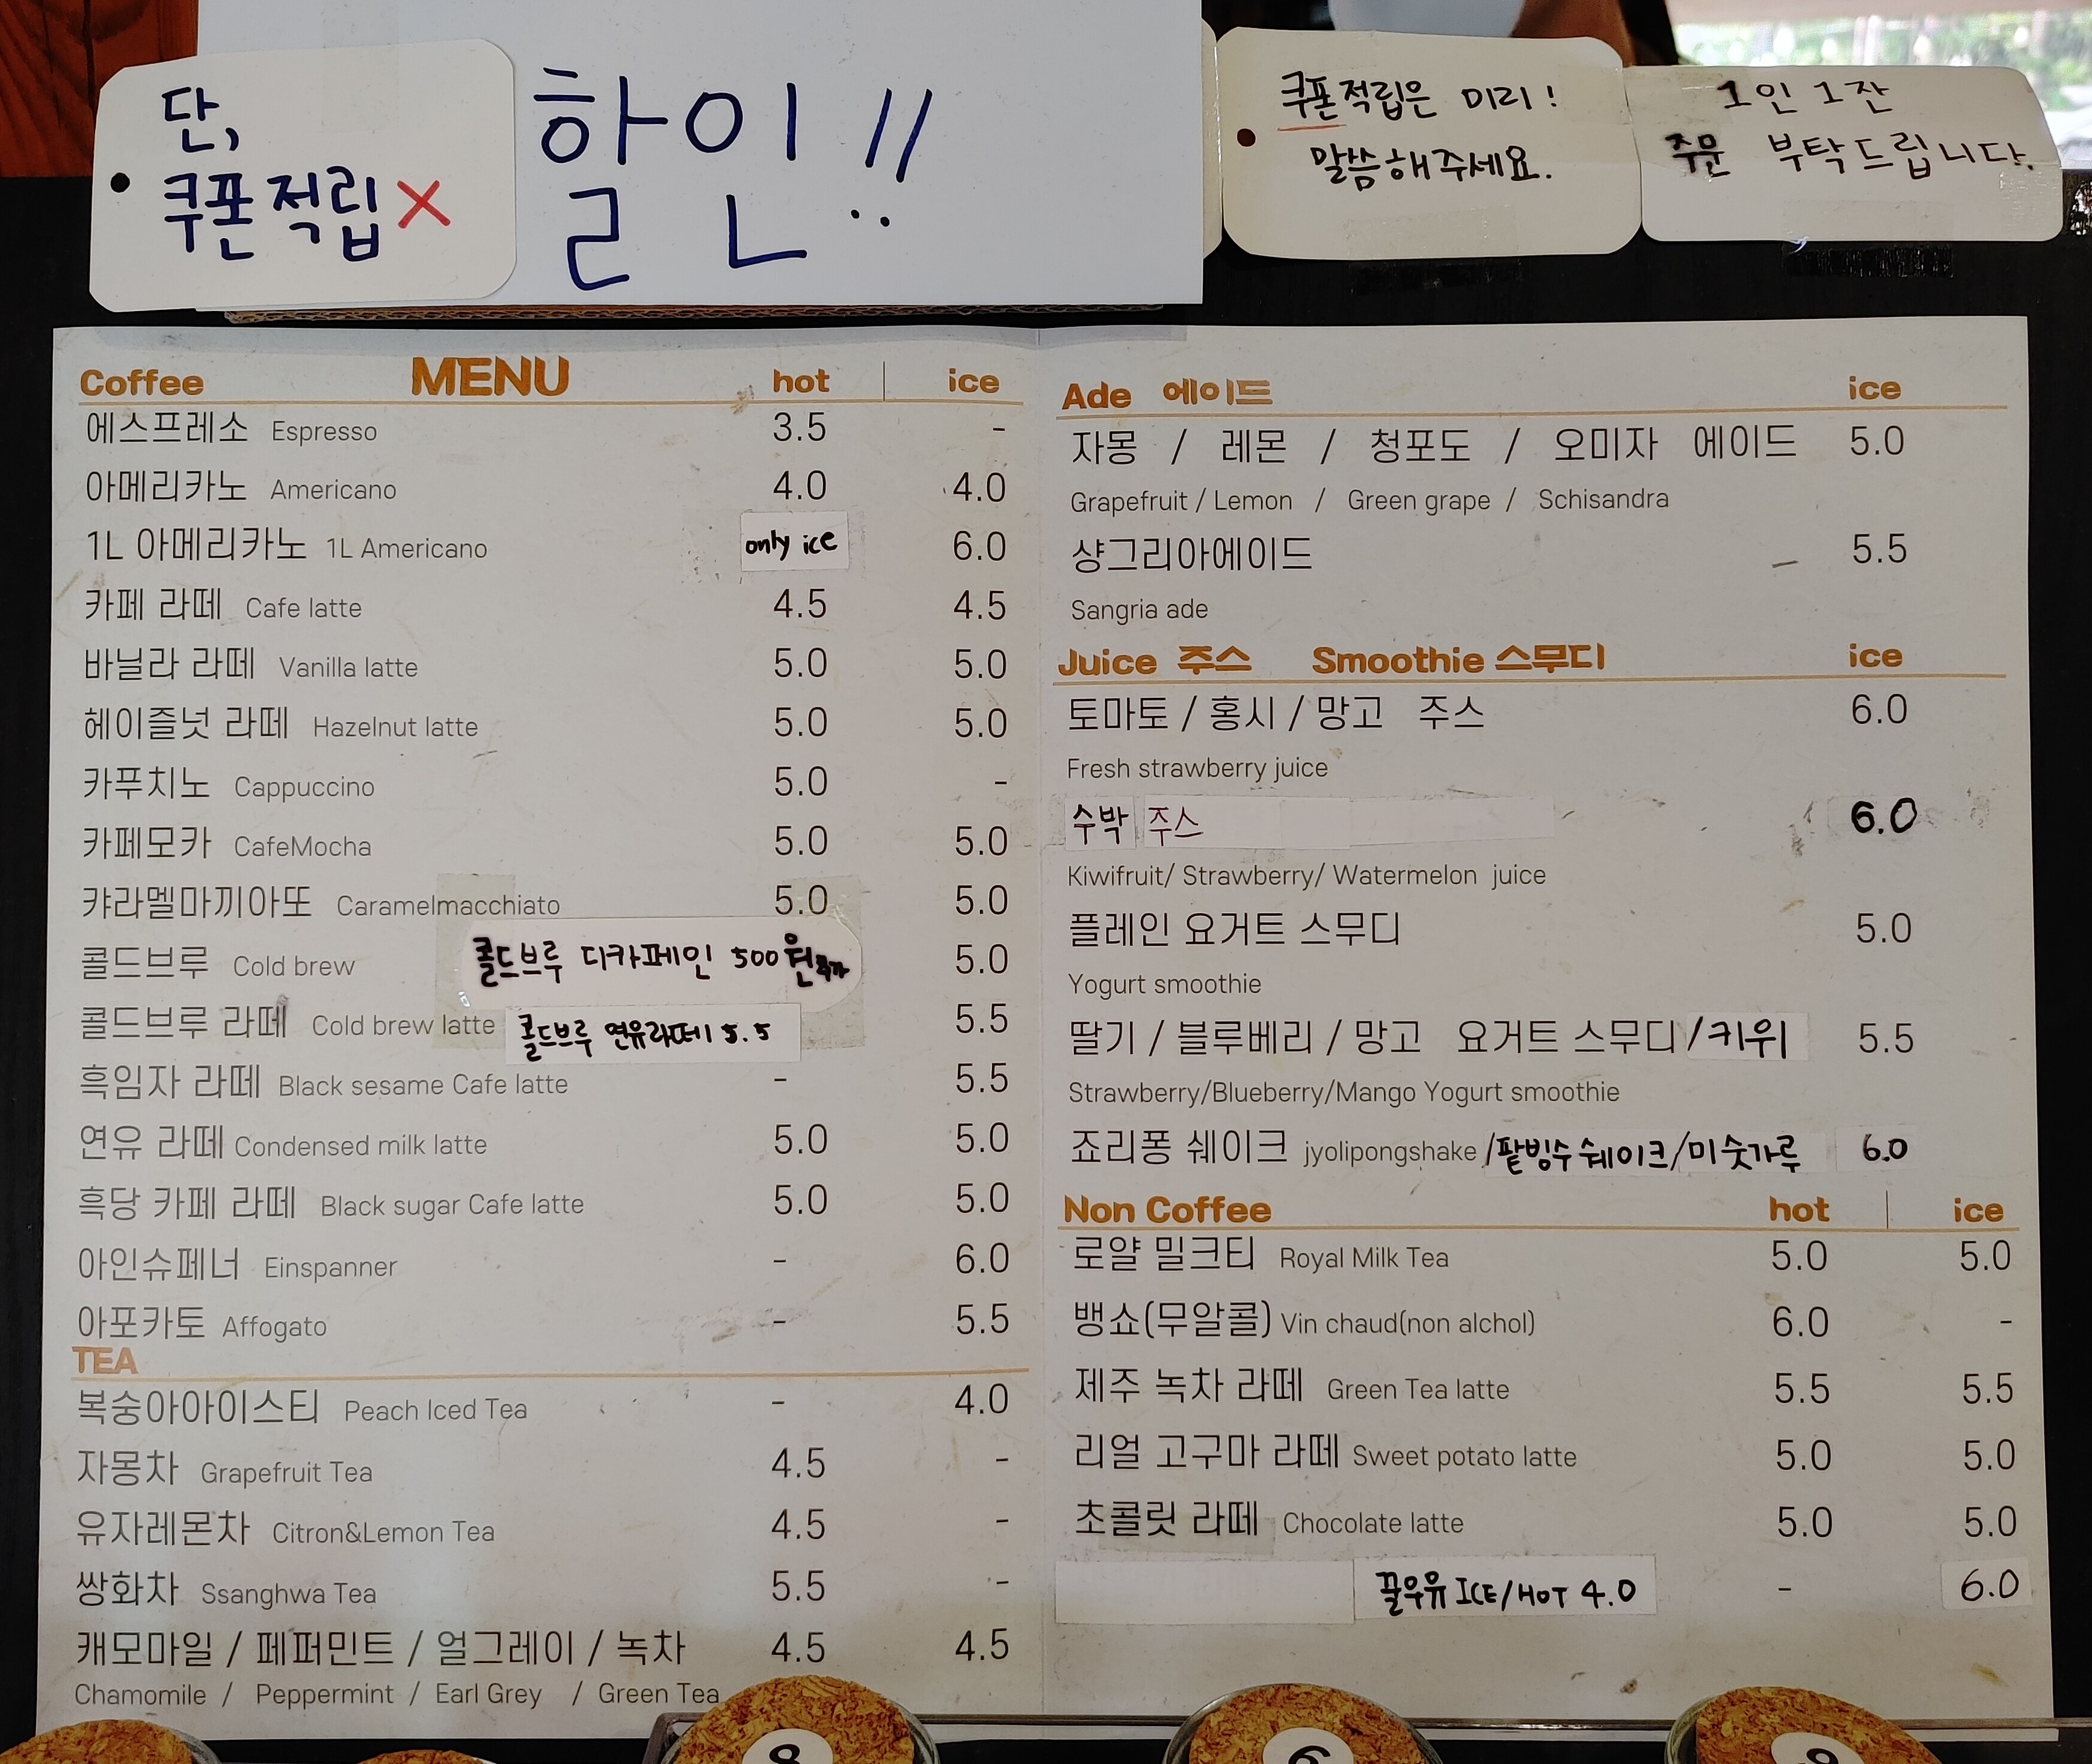 단,
쿠폰적립X
할인!!
쿠폰적립은 미리!
말씀해주세요.
1인 1잔
주문 부탁드립니다.
Coffee MENU hot ice
에스프레소 Espresso 3.5 -
아메리카노 Americano 4.0 4.0
1L 아메리카노 1L Americano only ice 6.0
카페 라떼 Cafe latte 4.5 4.5
바닐라 라떼 Vanilla latte 5.0 5.0
헤이즐넛 라떼 Hazelnut latte 5.0 5.0
카푸치노 Cappuccino 5.0 -
카페모카 CafeMocha 5.0 5.0
캬라멜마끼아또 Caramelmacchiato 5.0 5.0
콜드브루 Cold brew 콜드브루 디카페인 500원 추가 5.0
콜드브루 라떼 Cold brew latte 콜드브루 연유라떼 5.5 5.5
흑임자 라떼 Black sesame Cafe latte - 5.5
연유 라떼 Condensed milk latte 5.0 5.0
흑당 카페 라떼 Black sugar Cafe latte 5.0 5.0
아인슈페너 Einspanner - 6.0
아포카토 Affogato - 5.5
TEA
복숭아아이스티 Peach Iced Tea - 4.0
자몽차 Grapefruit Tea 4.5 -
유자레몬차 Citron&Lemon Tea 4.5 -
쌍화차 Ssanghwa Tea 5.5 -
캐모마일 / 페퍼민트 / 얼그레이 / 녹차 4.5 4.5
Chamomile / Peppermint / Earl Grey / Green Tea
Ade 에이드 ice
자몽 / 레몬 / 청포도 / 오미자 에이드 5.0
Grapefruit / Lemon / Green grape / Schisandra
샹그리아에이드 5.5
Sangria ade
Juice 주스 Smoothie 스무디 ice
토마토 / 홍시 / 망고 주스 6.0
Fresh strawberry juice
수박 주스 6.0
Kiwifruit/ Strawberry/ Watermelon juice
플레인 요거트 스무디 5.0
Yogurt smoothie
딸기 / 블루베리 / 망고 요거트 스무디 /키위 5.5
Strawberry/Blueberry/Mango Yogurt smoothie
죠리퐁 쉐이크 jyolipongshake /팥빙수 쉐이크/미숫가루 6.0
Non Coffee hot ice
로얄 밀크티 Royal Milk Tea 5.0 5.0
뱅쇼(무알콜) Vin chaud(non alchol) 6.0 -
제주 녹차 라떼 Green Tea latte 5.5 5.5
리얼 고구마 라떼 Sweet potato latte 5.0 5.0
초콜릿 라떼 Chocolate latte 5.0 5.0
꿀우유 ICE/HOT 4.0 - 6.0